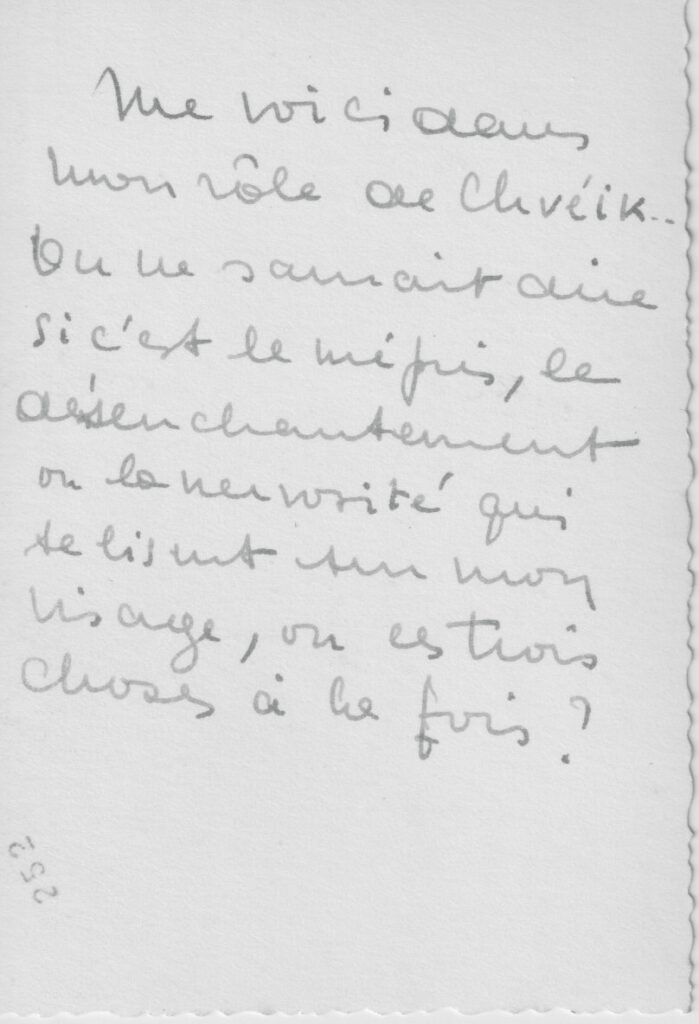 Me voici dans
mon rôle de Chvéik..
On ne saurait dire
si c'est le mépris, le
désenchantement
ou la nervosité qui
se lisent sur mon
visage, ou ces trois
choses à la fois ?
252